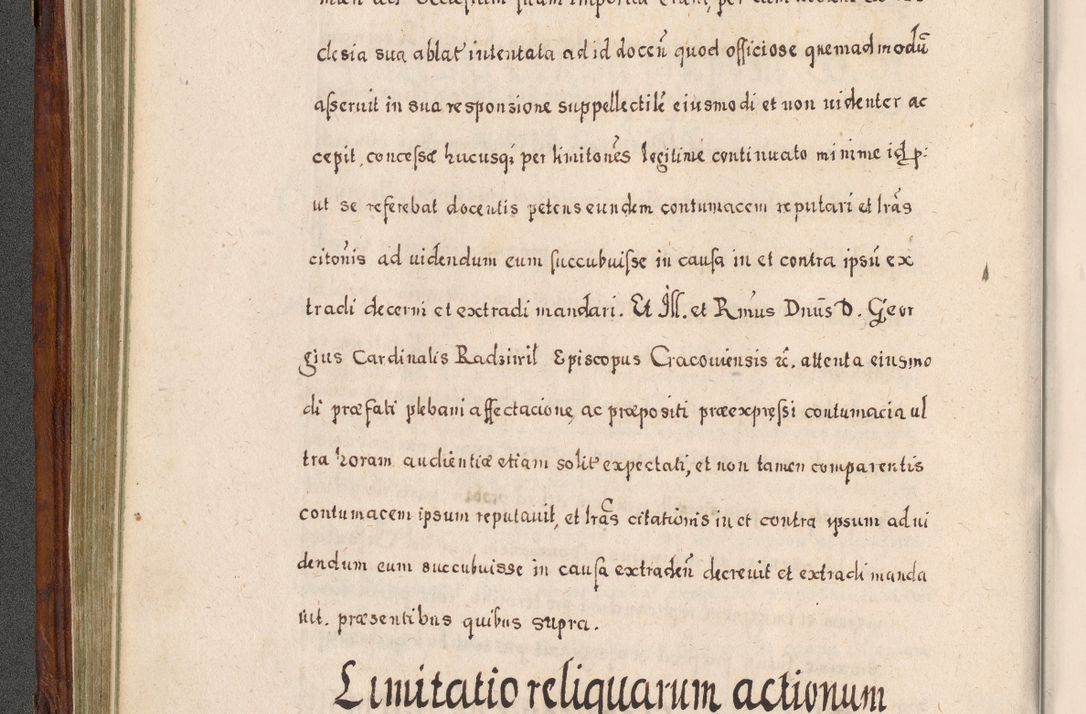 clesia sua ablat intentata ad id doceñ quod officiose quemadmodū
asseruit in sua responsione suppellectilē eiusmodi et non uidenter ac
cepit, concessæ hucusq; per limitoñes legitime continuato minime id p:
ut se referebat docentis petens eundem contumacem reputari et lrãs
citoñis ad uidendum eum succubuisse in causa in et contra ipsū ex
tradi decerni et extradi mandari. Et Ill. et Rm̃us Dnūs D. Geor
gius Cardinalis Radziwil Episcopus Cracouiensis rc̃. attenta eiusmo
di præfati plebani affectacione, ac præpositi præexpressi contumacia ul
tra horam audientiæ etiam solit expectati, et non tamen comparentis
contumacem ipsum reputauit, et lrãs citationis in et contra ipsum ad ui
dendum eum succubuisse in causa extradeñ decreuit et extradi manda
uit. præsentibus quibus supra.
Limitatio reliquarum actionum